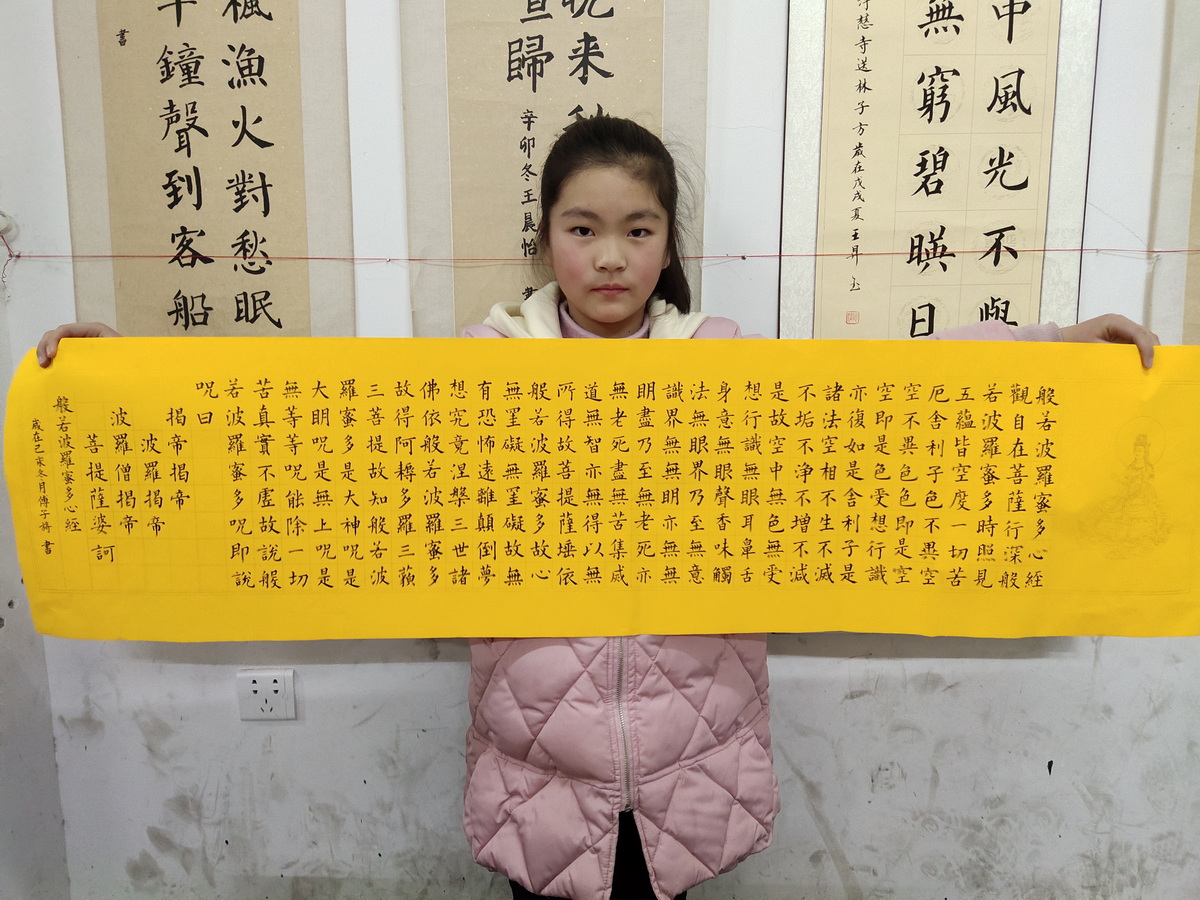 中風光不與
無窮碧暎日
慈寺送林子方歲在戊戌夏王
来
歸
辛卯冬王晨怡
楓漁火對愁眠
半鐘聲到客船
書
般若波羅蜜多心經
觀自在菩薩行深般
若波羅蜜多時照見
五蘊皆空度一切苦
厄舍利子色不異空
空不異色色即是空
空即是色受想行識
亦復如是舍利子是
諸法空相不生不滅
不垢不淨不增不減
是故空中無色無受
想行識無眼耳鼻舌
身意無眼聲香味觸
法無眼界乃至無意
識界無無明亦無無
明盡乃至無老死亦
無老死盡無苦集滅
道無智亦無得以無
所得故菩提薩埵依
般若波羅蜜多故心
無罣礙無罣礙故無
有恐怖遠離顛倒夢
想究竟涅槃三世諸
佛依般若波羅蜜多
故得阿耨多羅三藐
三菩提故知般若波
羅蜜多是大神呪是
大明呪是無上呪是
無等等呪能除一切
苦真實不虛故說般
若波羅蜜多呪即說
呪曰
揭帝揭帝
波羅揭帝
波羅僧揭帝
菩提薩婆訶
般若波羅蜜多心經
歲在己冬月子書